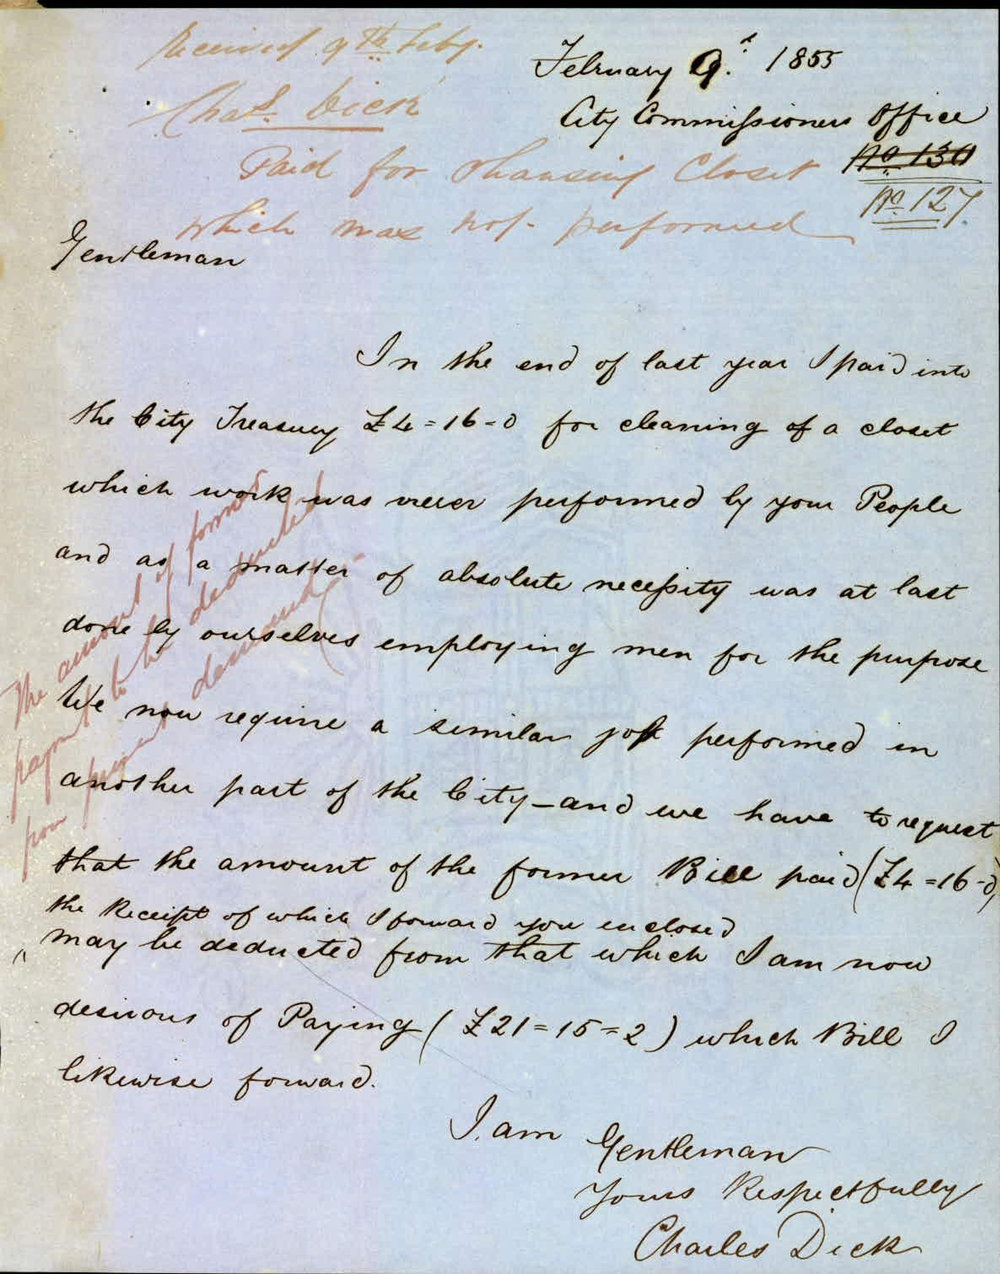 Received 9th Feby.
Chas. Dick
Paid for Cleansing Closet
which was not performed
February 9. 1855
City Commissioners Office
No 130
No. 127.
Gentleman
In the end of last year I paid into
the City Treasury £4=16=0 for cleaning of a closet
which work was never performed by your People
and as a matter of absolute necessity was at last
done by ourselves employing men for the purpose
We now require a similar job performed in
another part of the City—and we have to request
that the amount of the former Bill paid (£4=16=0)
the Receipt of which I forward you enclosed
may be deducted from that which I am now
desirous of Paying (£21=15=2) which Bill I
likewise forward.
I am Gentleman
Yours Respectfully
Charles Dick
The amount of former
payment to be deducted
from present demand